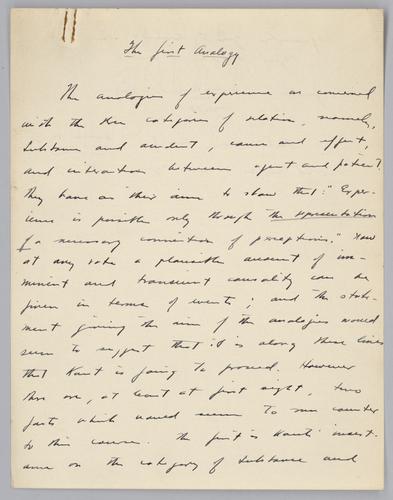 The first Analogy
The analogies of experience are concerned
with the three categories of relation, namely,
substance and accident, cause and effect,
and interaction between agent and patient.
They have as their aim to show that: "Expe-
rience is possible only through the representation
of a necessary connection of perceptions." Now
at any rate a plausible account of im-
minent and transient causality can be
given in terms of events; and the state-
ment giving the aim of the analogies would
seem to suggest that it is along these lines
that Kant is going to proceed. However
there are, at least at first sight, two
facts which would seem to run counter
to this course. The first is Kant's insist-
ance on the category of substance and